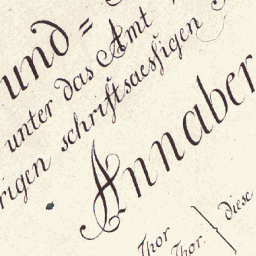 und=
unter das Amt
rigen schriftsaessigen
Annaber
Thor
Thor.
diese